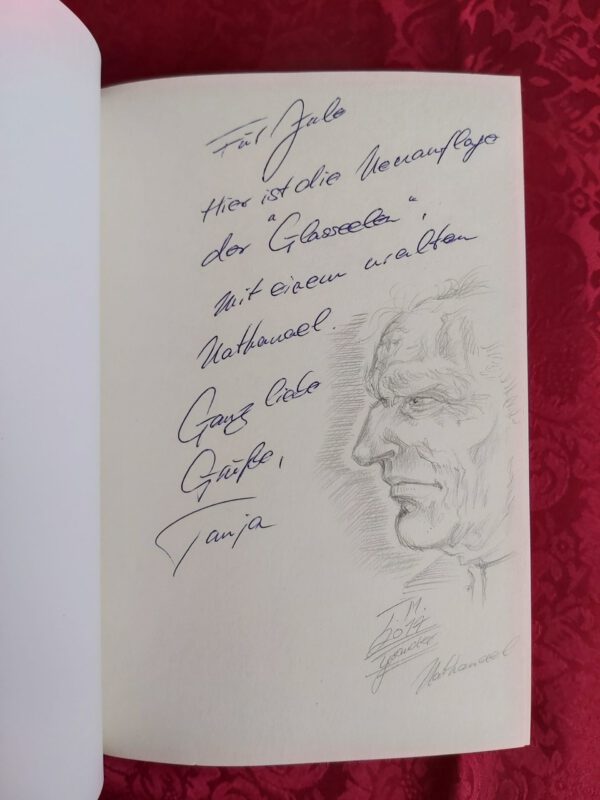 Für Jule
Hier ist die Neuauflage
der "Glasseelen",
mit einem uralten
Nathanael.
Ganz liebe
Grüße,
Tanja
T. M.
2017
Nathanael